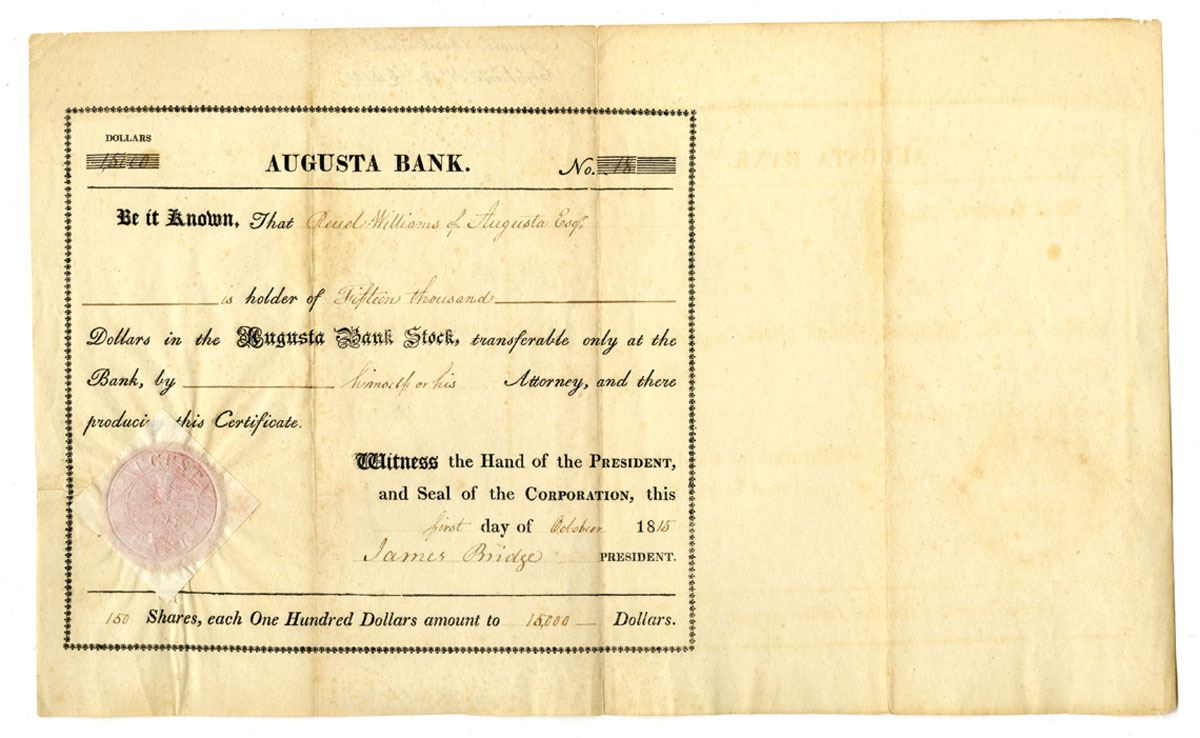 DOLLARS
15000
AUGUSTA BANK.
No. 18
Be it Known, That Reuel Williams of Augusta Esqr.
is holder of Fifteen thousand
Dollars in the Augusta Bank Stock, transferable only at the
Bank, by himself or his Attorney, and there
producing this Certificate.
Witness the Hand of the PRESIDENT,
and Seal of the CORPORATION, this
first day of October 1815
James Bridge PRESIDENT.
150 Shares, each One Hundred Dollars amount to 15,000 Dollars.